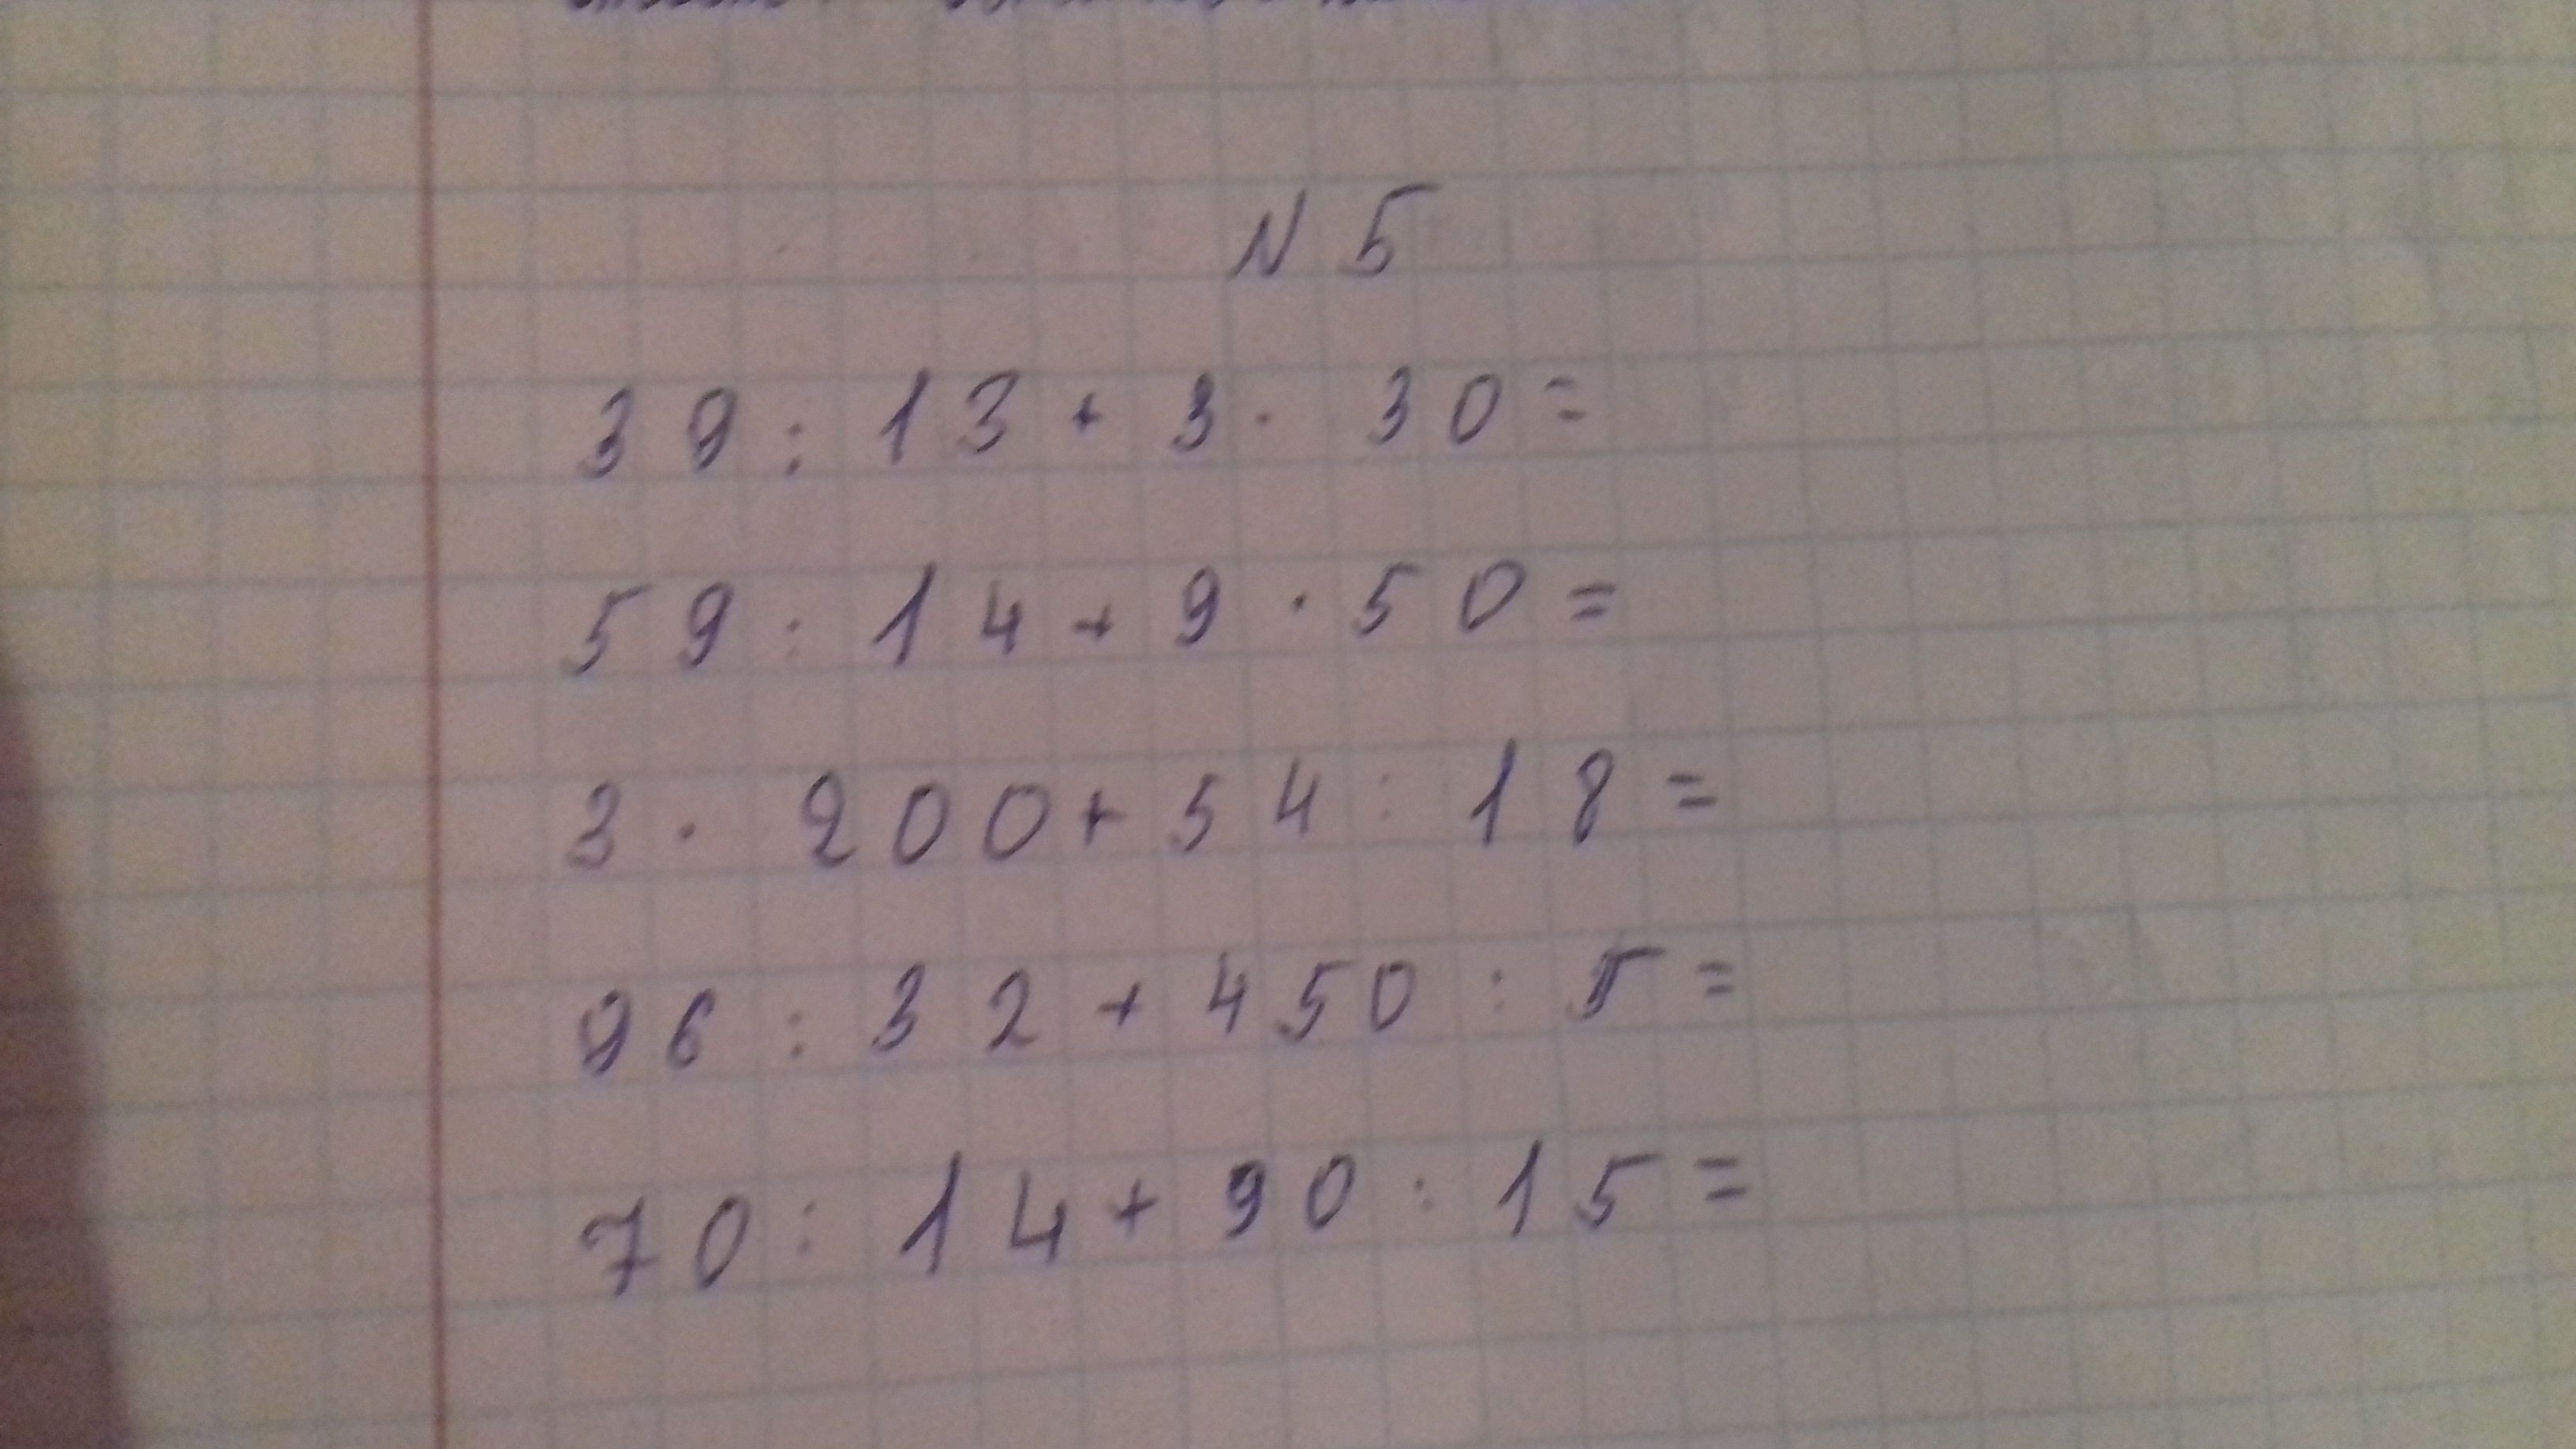 N 5
39 : 13 + 3 · 30 =
59 : 14 + 9 · 50 =
3 · 200 + 54 : 18 =
96 : 32 + 450 : 5 =
70 : 14 + 90 : 15 =